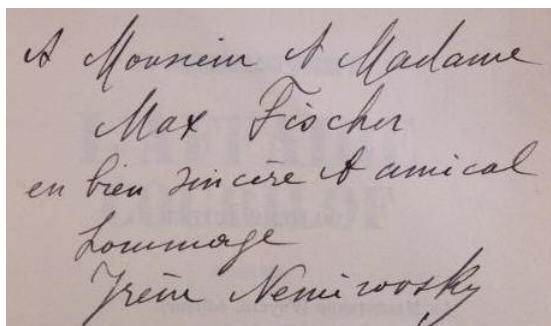 A Monsieur & Madame
Max Fischer
en bien sincère & amical
hommage
Irène Nemirovsky